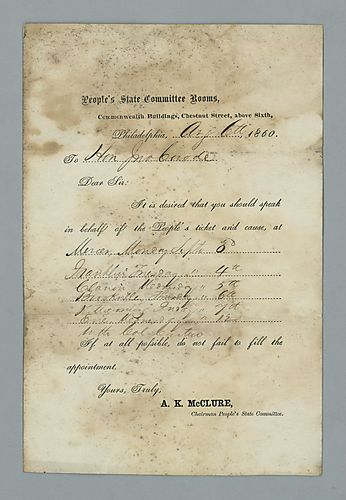 People's State Committee Rooms,
Commonwealth Buildings, Chestnut Street, above Sixth,
Philadelphia, Aug 6th, 1860.
To Hon Jno Covode
Dear Sir:
It is desired that you should speak
in behalf off the People's ticket and cause, at
Mercer Monday Sept 3d
Franklin Tuesday " 4th
Clarion Wednesday " 5th
Brookville Thursday " 6th
" 7th
If at all possible, do not fail to fill the
appointment.
Yours, Truly,
A. K. McCLURE,
Chairman People's State Committee.